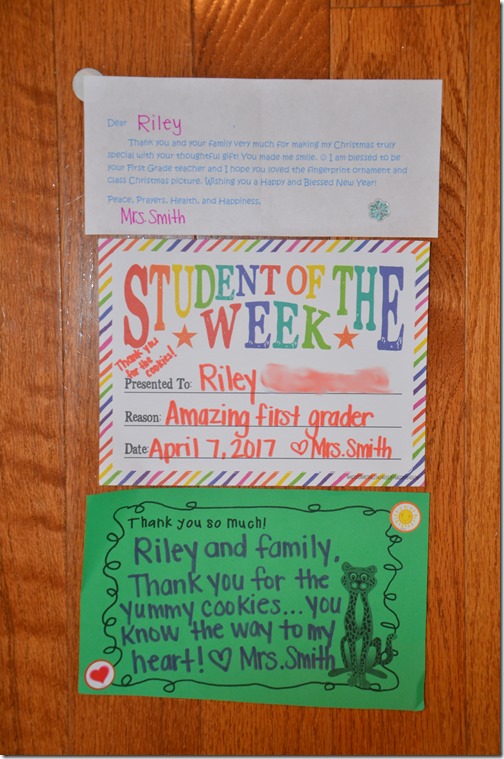 Dear Riley
Thank you and your family very much for making my Christmas truly
special with your thoughtful gift! You made me smile. ☺ I am blessed to be
your First Grade teacher and I hope you loved the fingerprint ornament and
class Christmas picture. Wishing you a Happy and Blessed New Year!
Peace, Prayers, Health, and Happiness,
Mrs. Smith
STUDENT OF THE
WEEK
Thank you
for the
cookies!
Presented To: Riley
Reason: Amazing first grader
Date: April 7, 2017 ♡ Mrs. Smith
Thank you so much!
Riley and family,
Thank you for the
yummy cookies...you
know the way to my
heart! ♡ Mrs. Smith